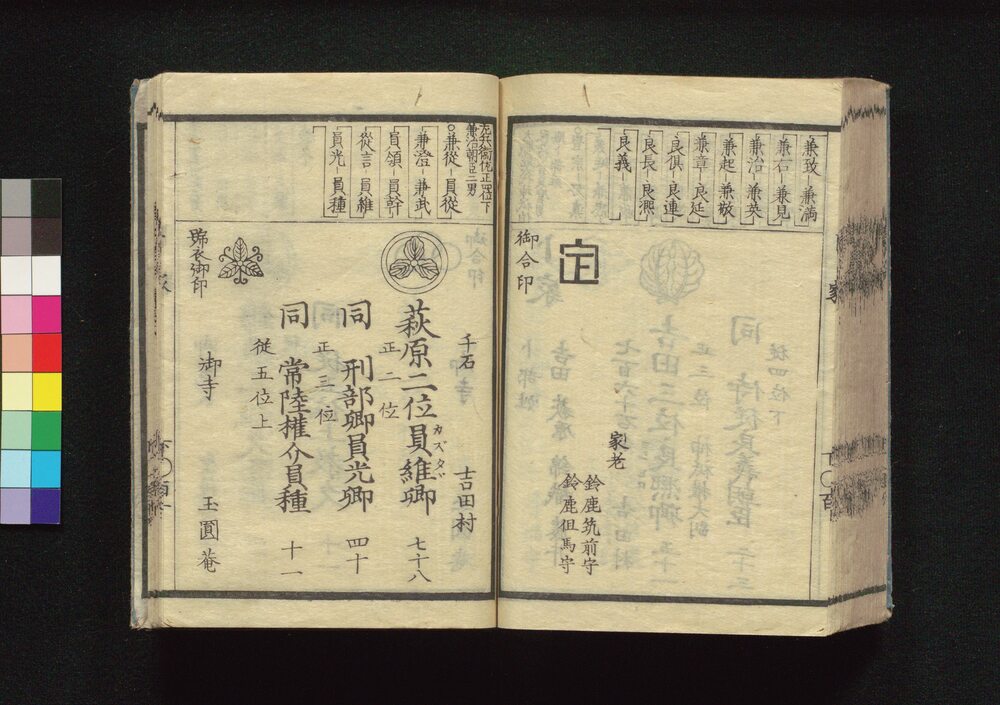 兼致 兼満
兼右 兼見
兼治 兼英
兼起 兼敬
兼章 良延
良倶 良連
良長 良凞
良義
御合印
家老
鈴鹿筑前守
鈴鹿但馬守
左兵衛佐正四位下
兼治朝臣二男
○兼從 員從
兼澄 兼武
員領 員幹
從言 員維
員光 員種
千石 吉田村
萩原二位員維卿 七十八
カズタヾ
正二位
同 刑部卿員光卿 四十
正三位
同 常陸権介員種 十一
從五位上
御寺 玉圓菴
御印